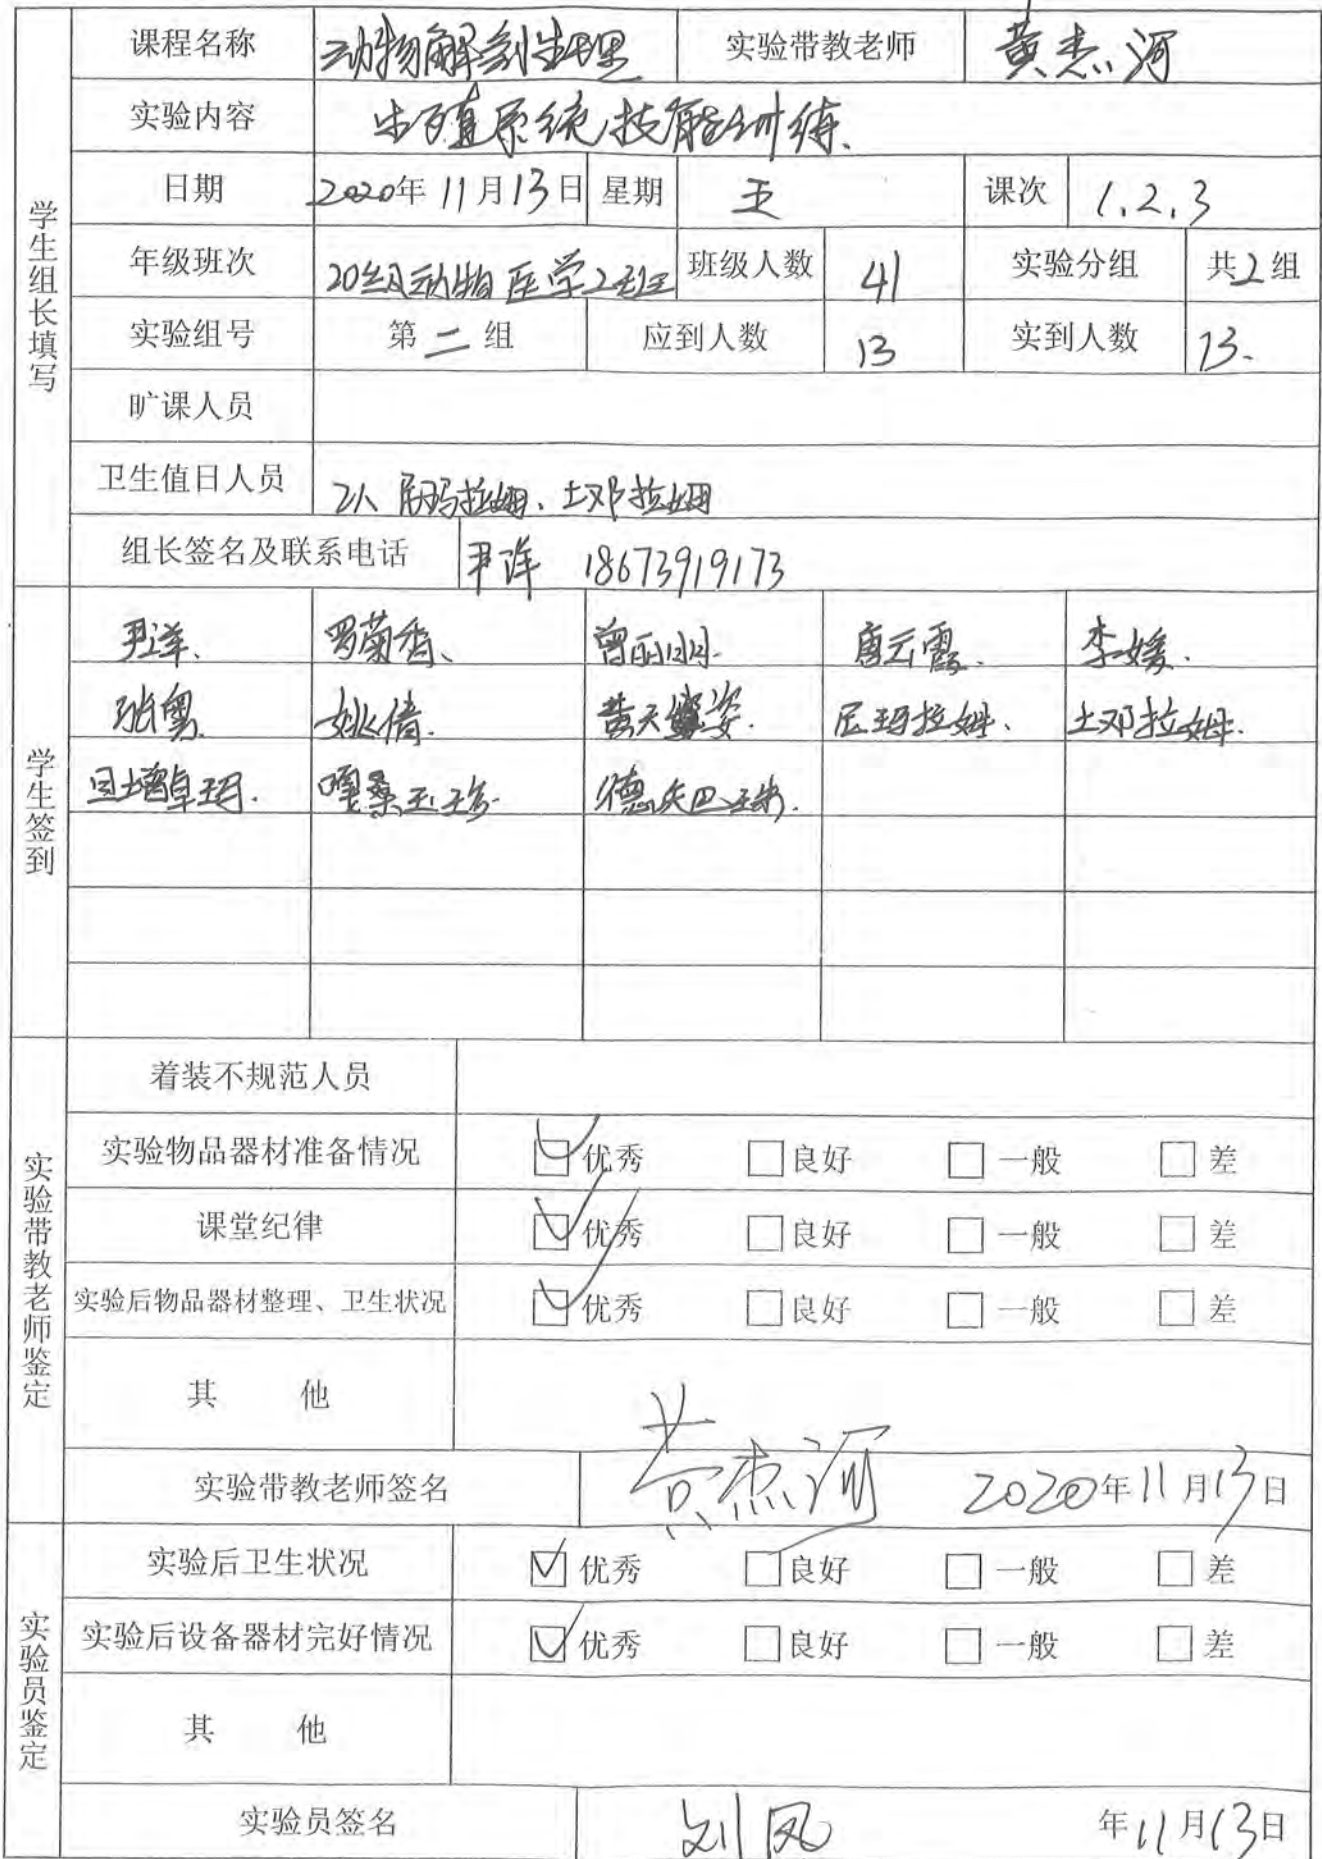 课程名称 动物解剖生理 实验带教老师 黄杰河
实验内容 生殖系统技能训练.
日期 2020年11月13日 星期 五 课次 1.2.3
年级班次 20级动物医学2班 班级人数 41 实验分组 共2组
实验组号 第二组 应到人数 13 实到人数 13.
旷课人员
卫生值日人员 2人 尼玛拉姆、土邓拉姆
组长签名及联系电话 尹洋 18673919173
学生组长填写
尹洋、 罗菊香、 曾丽明. 唐云霞. 李媛.
张粤. 姚倩. 黄天姿. 尼玛拉姆、 土邓拉姆.
旦增卓玛. 嘎桑玉珍. 德庆巴珠.
学生签到
着装不规范人员
实验物品器材准备情况 ☑优秀 □良好 □一般 □差
课堂纪律 ☑优秀 □良好 □一般 □差
实验后物品器材整理、卫生状况 ☑优秀 □良好 □一般 □差
其 他
实验带教老师签名 黄杰河 2020年11月13日
实验带教老师鉴定
实验后卫生状况 ☑优秀 □良好 □一般 □差
实验后设备器材完好情况 ☑优秀 □良好 □一般 □差
其 他
实验员签名 刘凤 年11月13日
实验员鉴定